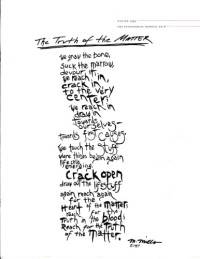 The Truth of the Matter
we gnaw the bone,
suck the marrow,
devour it, in,
we reach in,
crack in
to the very
center,
we reach in
draw in
towards
ourselves—
towards 1st causes,
we touch the stuff
where things begin again
life is
emerging.
Crack open
draw out the life stuff
again, reach again
for the
Heart of the matter,
reach for the
Truth in the blood.
Reach for the Truth
of the Matter.